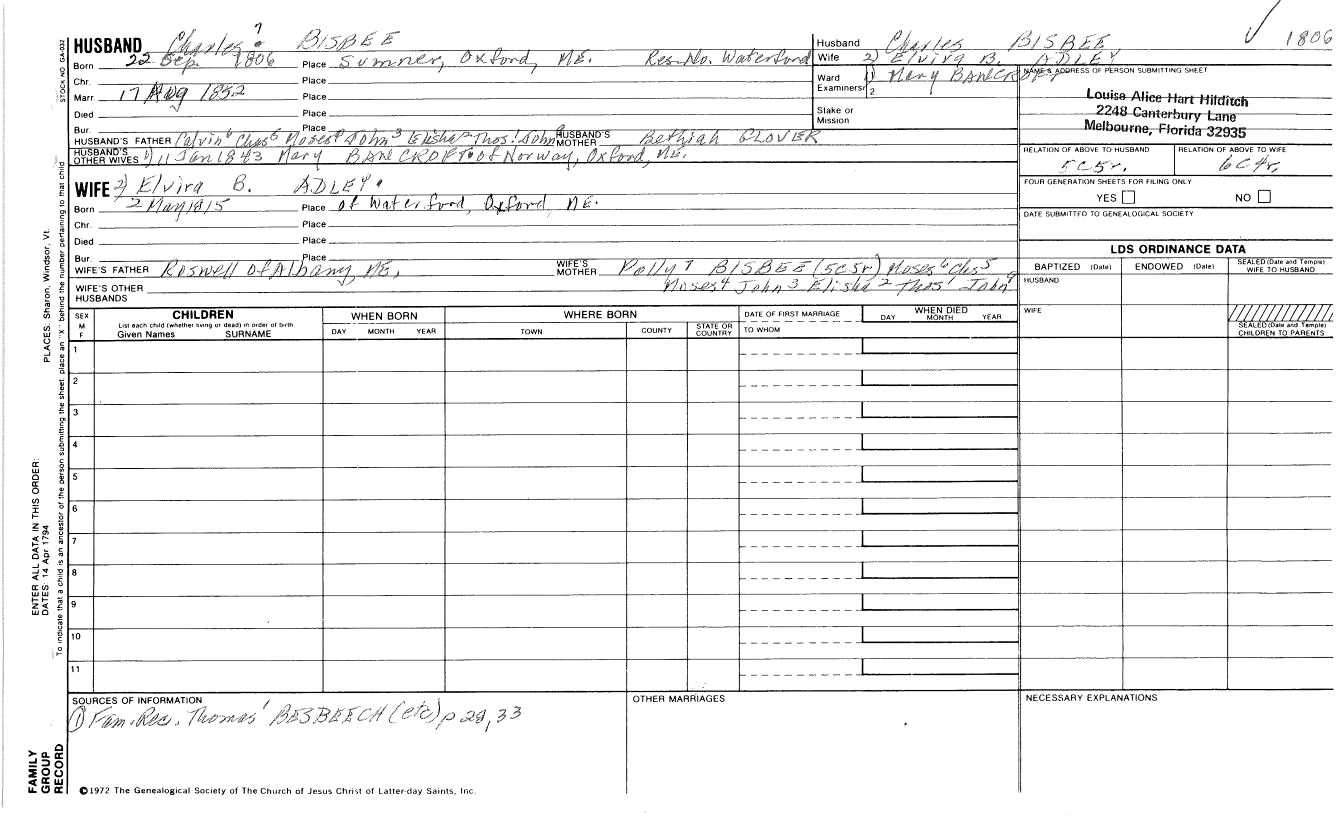 7
HUSBAND Charles BISBEE
Born 22 Sep. 1806 Place Sumner, Oxford, ME. Res. No. Waterford
Chr. Place
Marr. 17 Aug 1852 Place
Died Place
Bur. Place
HUSBAND'S FATHER Calvin 6 Chas 5 Moses 4 John 3 Elisha 2 Thos. 1 John HUSBAND'S MOTHER Bethiah GLOVER
HUSBAND'S OTHER WIVES 1) 11 Jan 1843 Mary BANCROFT of Norway, Oxford, ME.
WIFE 2) Elvira B. ADLEY
Born 2 May 1815 Place of Waterford, Oxford, ME.
Chr. Place
Died Place
Bur. Place
WIFE'S FATHER Roswell of Albany ME. WIFE'S MOTHER Polly 7 BISBEE (5C5r) Moses 6 Chas 5
Moses 4 John 3 Elisha 2 Thos 1 John
WIFE'S OTHER HUSBANDS
Husband Charles BISBEE
Wife 2) Elvira B. ADLEY
1) Mary BANCROFT
Ward
Examiners: 1
2
Stake or
Mission
✓ 1806
NAME & ADDRESS OF PERSON SUBMITTING SHEET
Louise Alice Hart Hilditch
2248 Canterbury Lane
Melbourne, Florida 32935
RELATION OF ABOVE TO HUSBAND RELATION OF ABOVE TO WIFE
5C5r. 6C4r.
FOUR GENERATION SHEETS FOR FILING ONLY
YES NO
DATE SUBMITTED TO GENEALOGICAL SOCIETY
LDS ORDINANCE DATA
BAPTIZED (Date) ENDOWED (Date) SEALED (Date and Temple) WIFE TO HUSBAND
HUSBAND
WIFE
SEALED (Date and Temple)
CHILDREN TO PARENTS
SEX
M
F
CHILDREN
List each child (whether living or dead) in order of birth
Given Names SURNAME
WHEN BORN
DAY MONTH YEAR
WHERE BORN
TOWN COUNTY STATE OR COUNTRY
DATE OF FIRST MARRIAGE
TO WHOM
WHEN DIED
DAY MONTH YEAR
1
2
3
4
5
6
7
8
9
10
11
SOURCES OF INFORMATION
1) Fam. Rec. Thomas 1 BESBEECH (etc) p 28, 33
OTHER MARRIAGES
NECESSARY EXPLANATIONS
©1972 The Genealogical Society of The Church of Jesus Christ of Latter-day Saints, Inc.
STOCK NO GSA-032
PLACES: Sharon, Windsor, Vt.
ENTER ALL DATA IN THIS ORDER:
DATES: 14 Apr 1794
To indicate that a child is an ancestor of the person submitting the sheet, place an "X" behind the number pertaining to that child
FAMILY
GROUP
RECORD